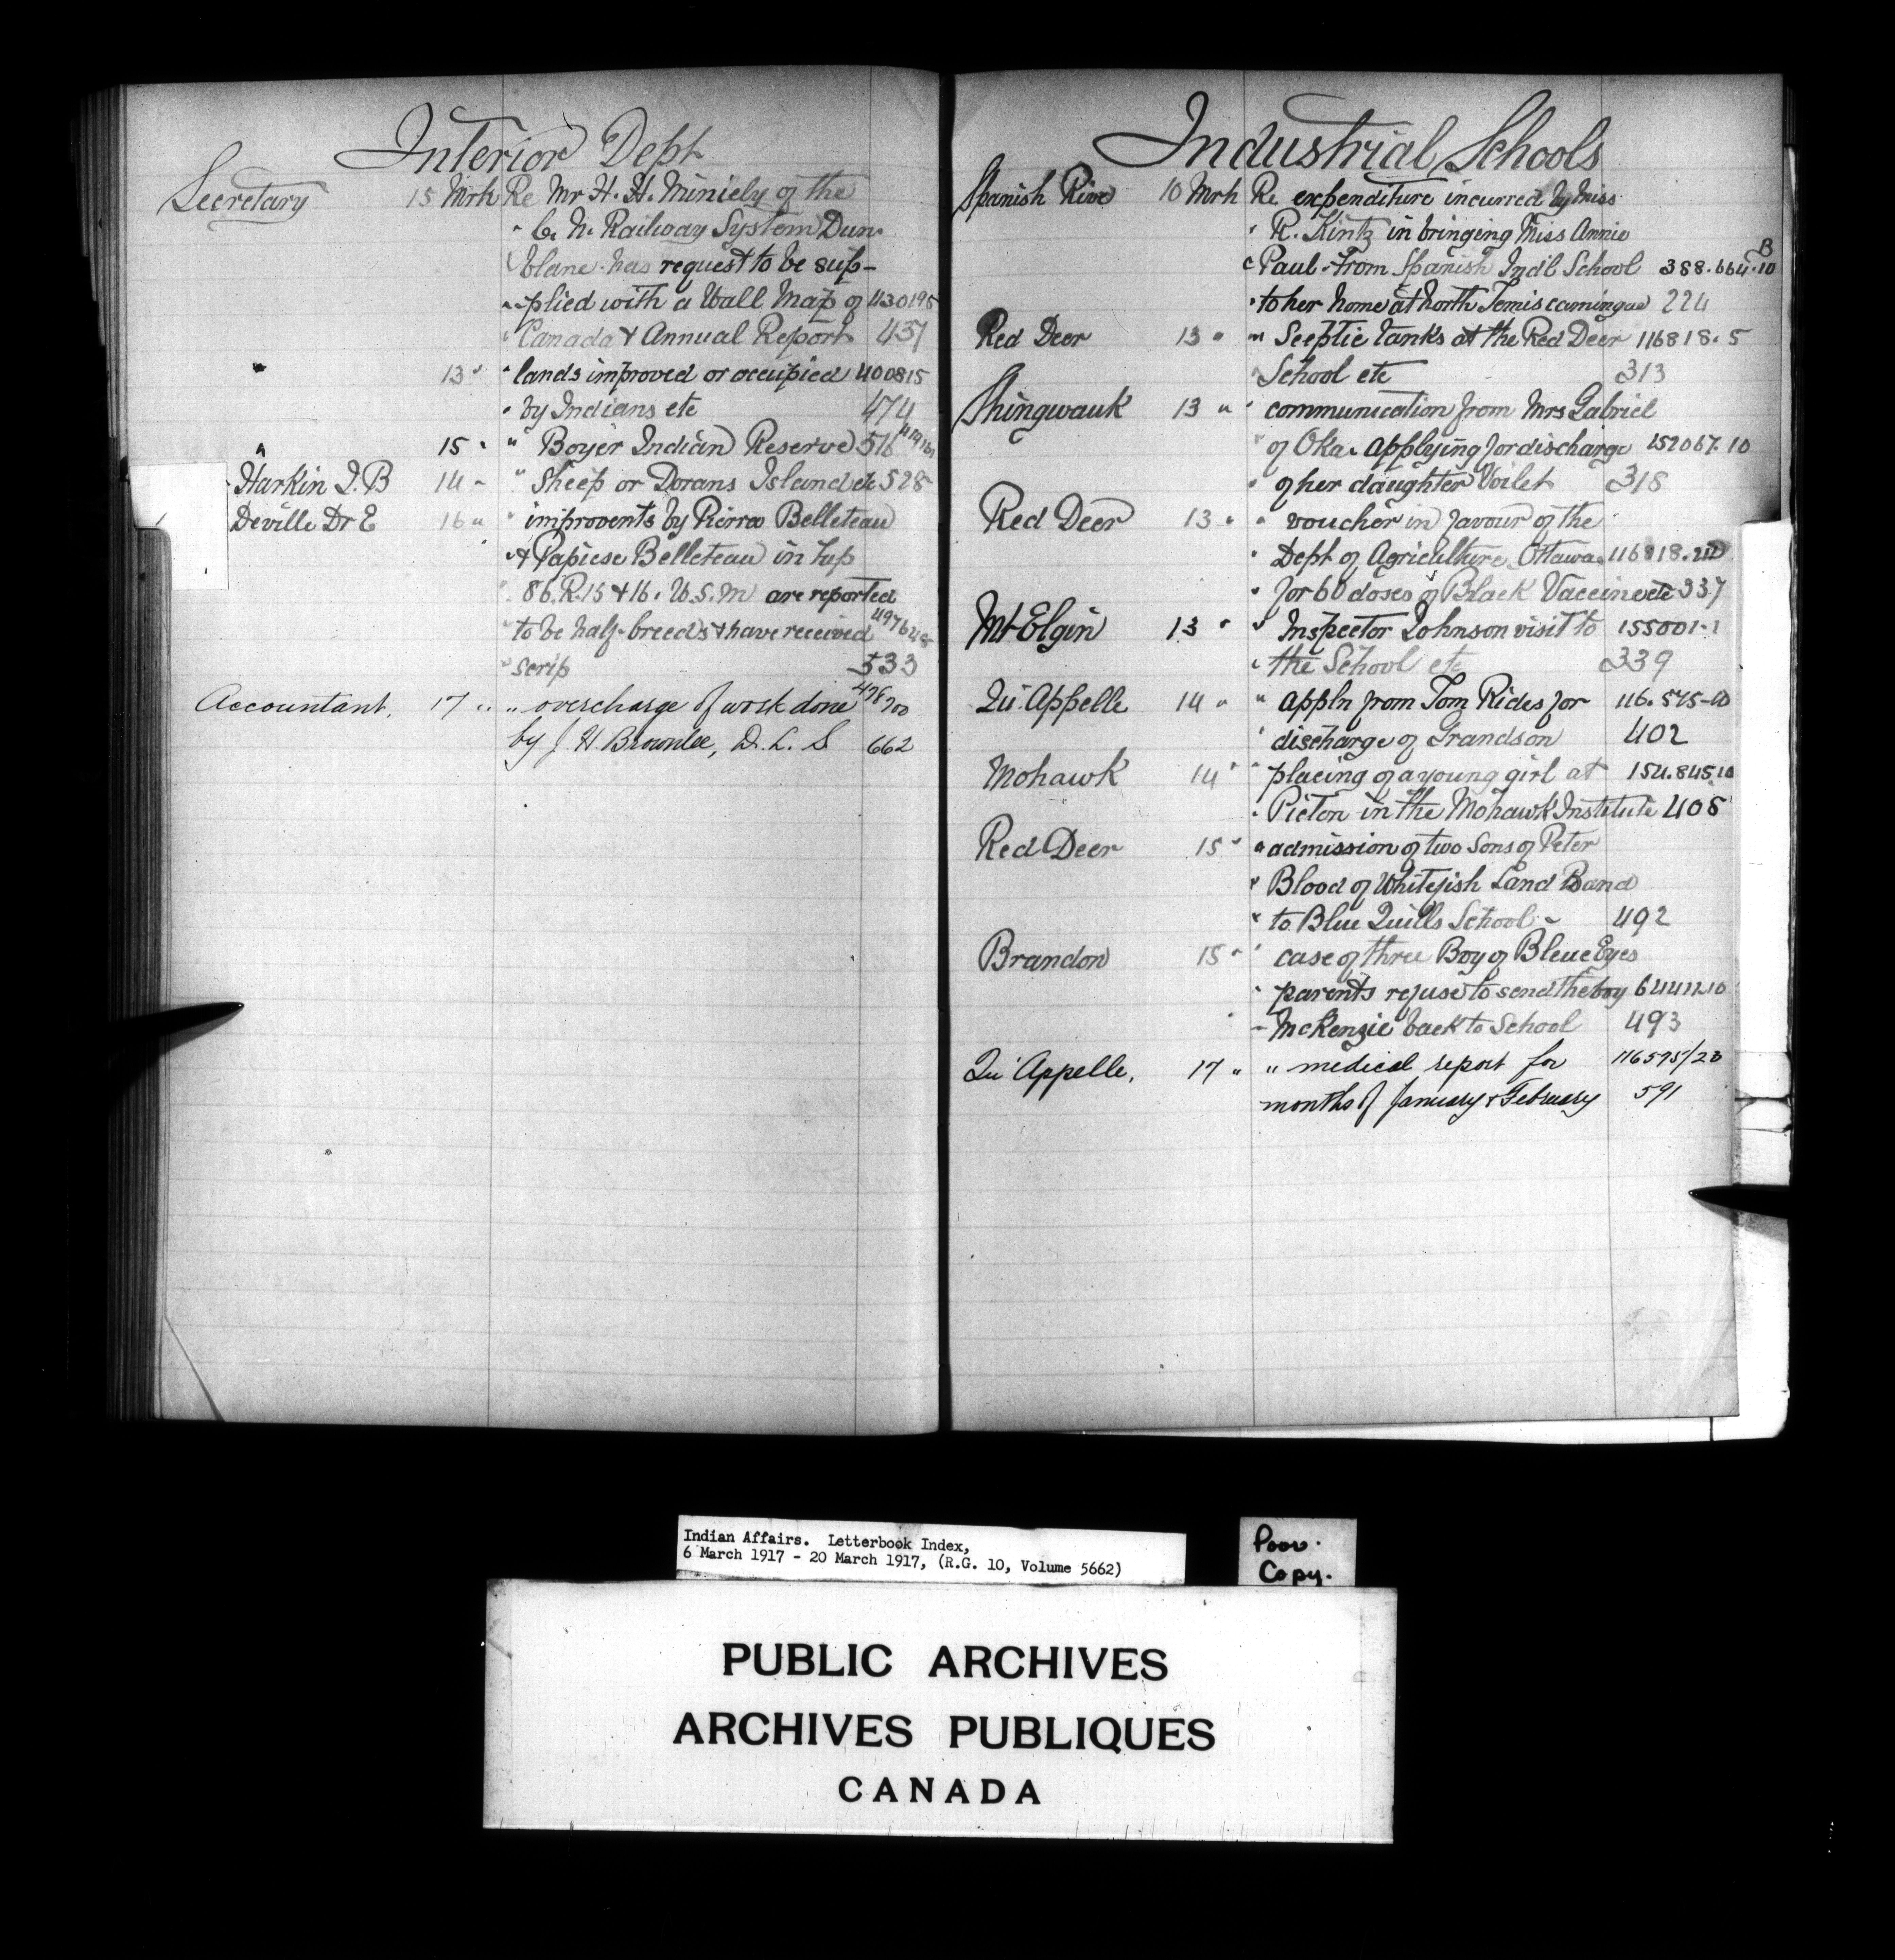 Interior Dept
Secretary 15 Mrh Re Mr H. H. Miniely of the
" C. N. Railway System Dun
blane has request to be sup-
" plied with a Wall Map of 430198
" Canada & Annual Report 437
" 13 " " lands improved or occupied 400815
" by Indians etc 474
" 15 " " Boyer Indian Reserve 516
Harkin J. B 14 " " Sheep or Dorans Island etc 528
Deville Dr E 16 " " improvents by Pierre Belleteau
" & Papiese Belleteau in Tup
" 86. R. 15 & 16. W. 5. M are reported
" to be half-breeds & have received 497648
" scrip 533
Accountant. 17 " " overcharge of work done 498700
by J. H. Brownlee, D. L. S 662
Industrial Schools
Spanish River 10 Mrh Re expenditure incurred by Miss
" R. Kintz in bringing Miss Annie
" Paul from Spanish Ind'l School 388.664.10 B
" to her home at North Temiscamingue 224
Red Deer 13 " " Seeptic tanks at the Red Deer 116818.5
" School etc 313
Shingwauk 13 " " communication from Mrs Gabriel
" of Oka. applying for discharge 152067.10
" of her daughter Voilet 318
Red Deer 13 " " voucher in favour of the
" Dept of Agriculture Ottawa 116818.
" for 60 doses of Black Vaccine etc 337
Mt Elgin 13 " " Inspector Johnson visit to 155001-1
" the School etc 339
Qu'Appelle 14 " " appln from Tom Rides for 116.575-10
" discharge of Grandson 402
Mohawk 14 " " placing of a young girl at 154.845.10
" Picton in the Mohawk Institute 405
Red Deer 15 " " admission of two Sons of Peter
" Blood of Whitefish Land Band
" to Blue Quills School - 492
Brandon 15 " " case of three Boy of Bleue Eyes
" parents refuse to send the boy
- McKenzie back to School 493
Qu'Appelle, 17 " " medical report for 116575/23
months of January & February 591
Indian Affairs. Letterbook Index,
6 March 1917 - 20 March 1917, (R.G. 10, Volume 5662)
Poor.
Copy.
PUBLIC ARCHIVES
ARCHIVES PUBLIQUES
CANADA